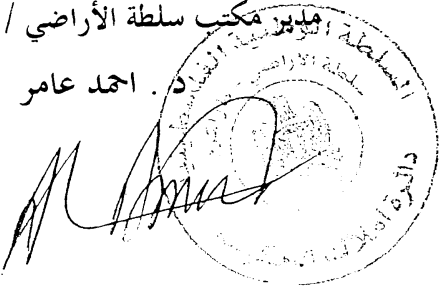 مدير مكتب سلطة الأراضي /
د . احمد عامر
السلطة الوطنية الفلسطينية
سلطة الأراضي
دائرة